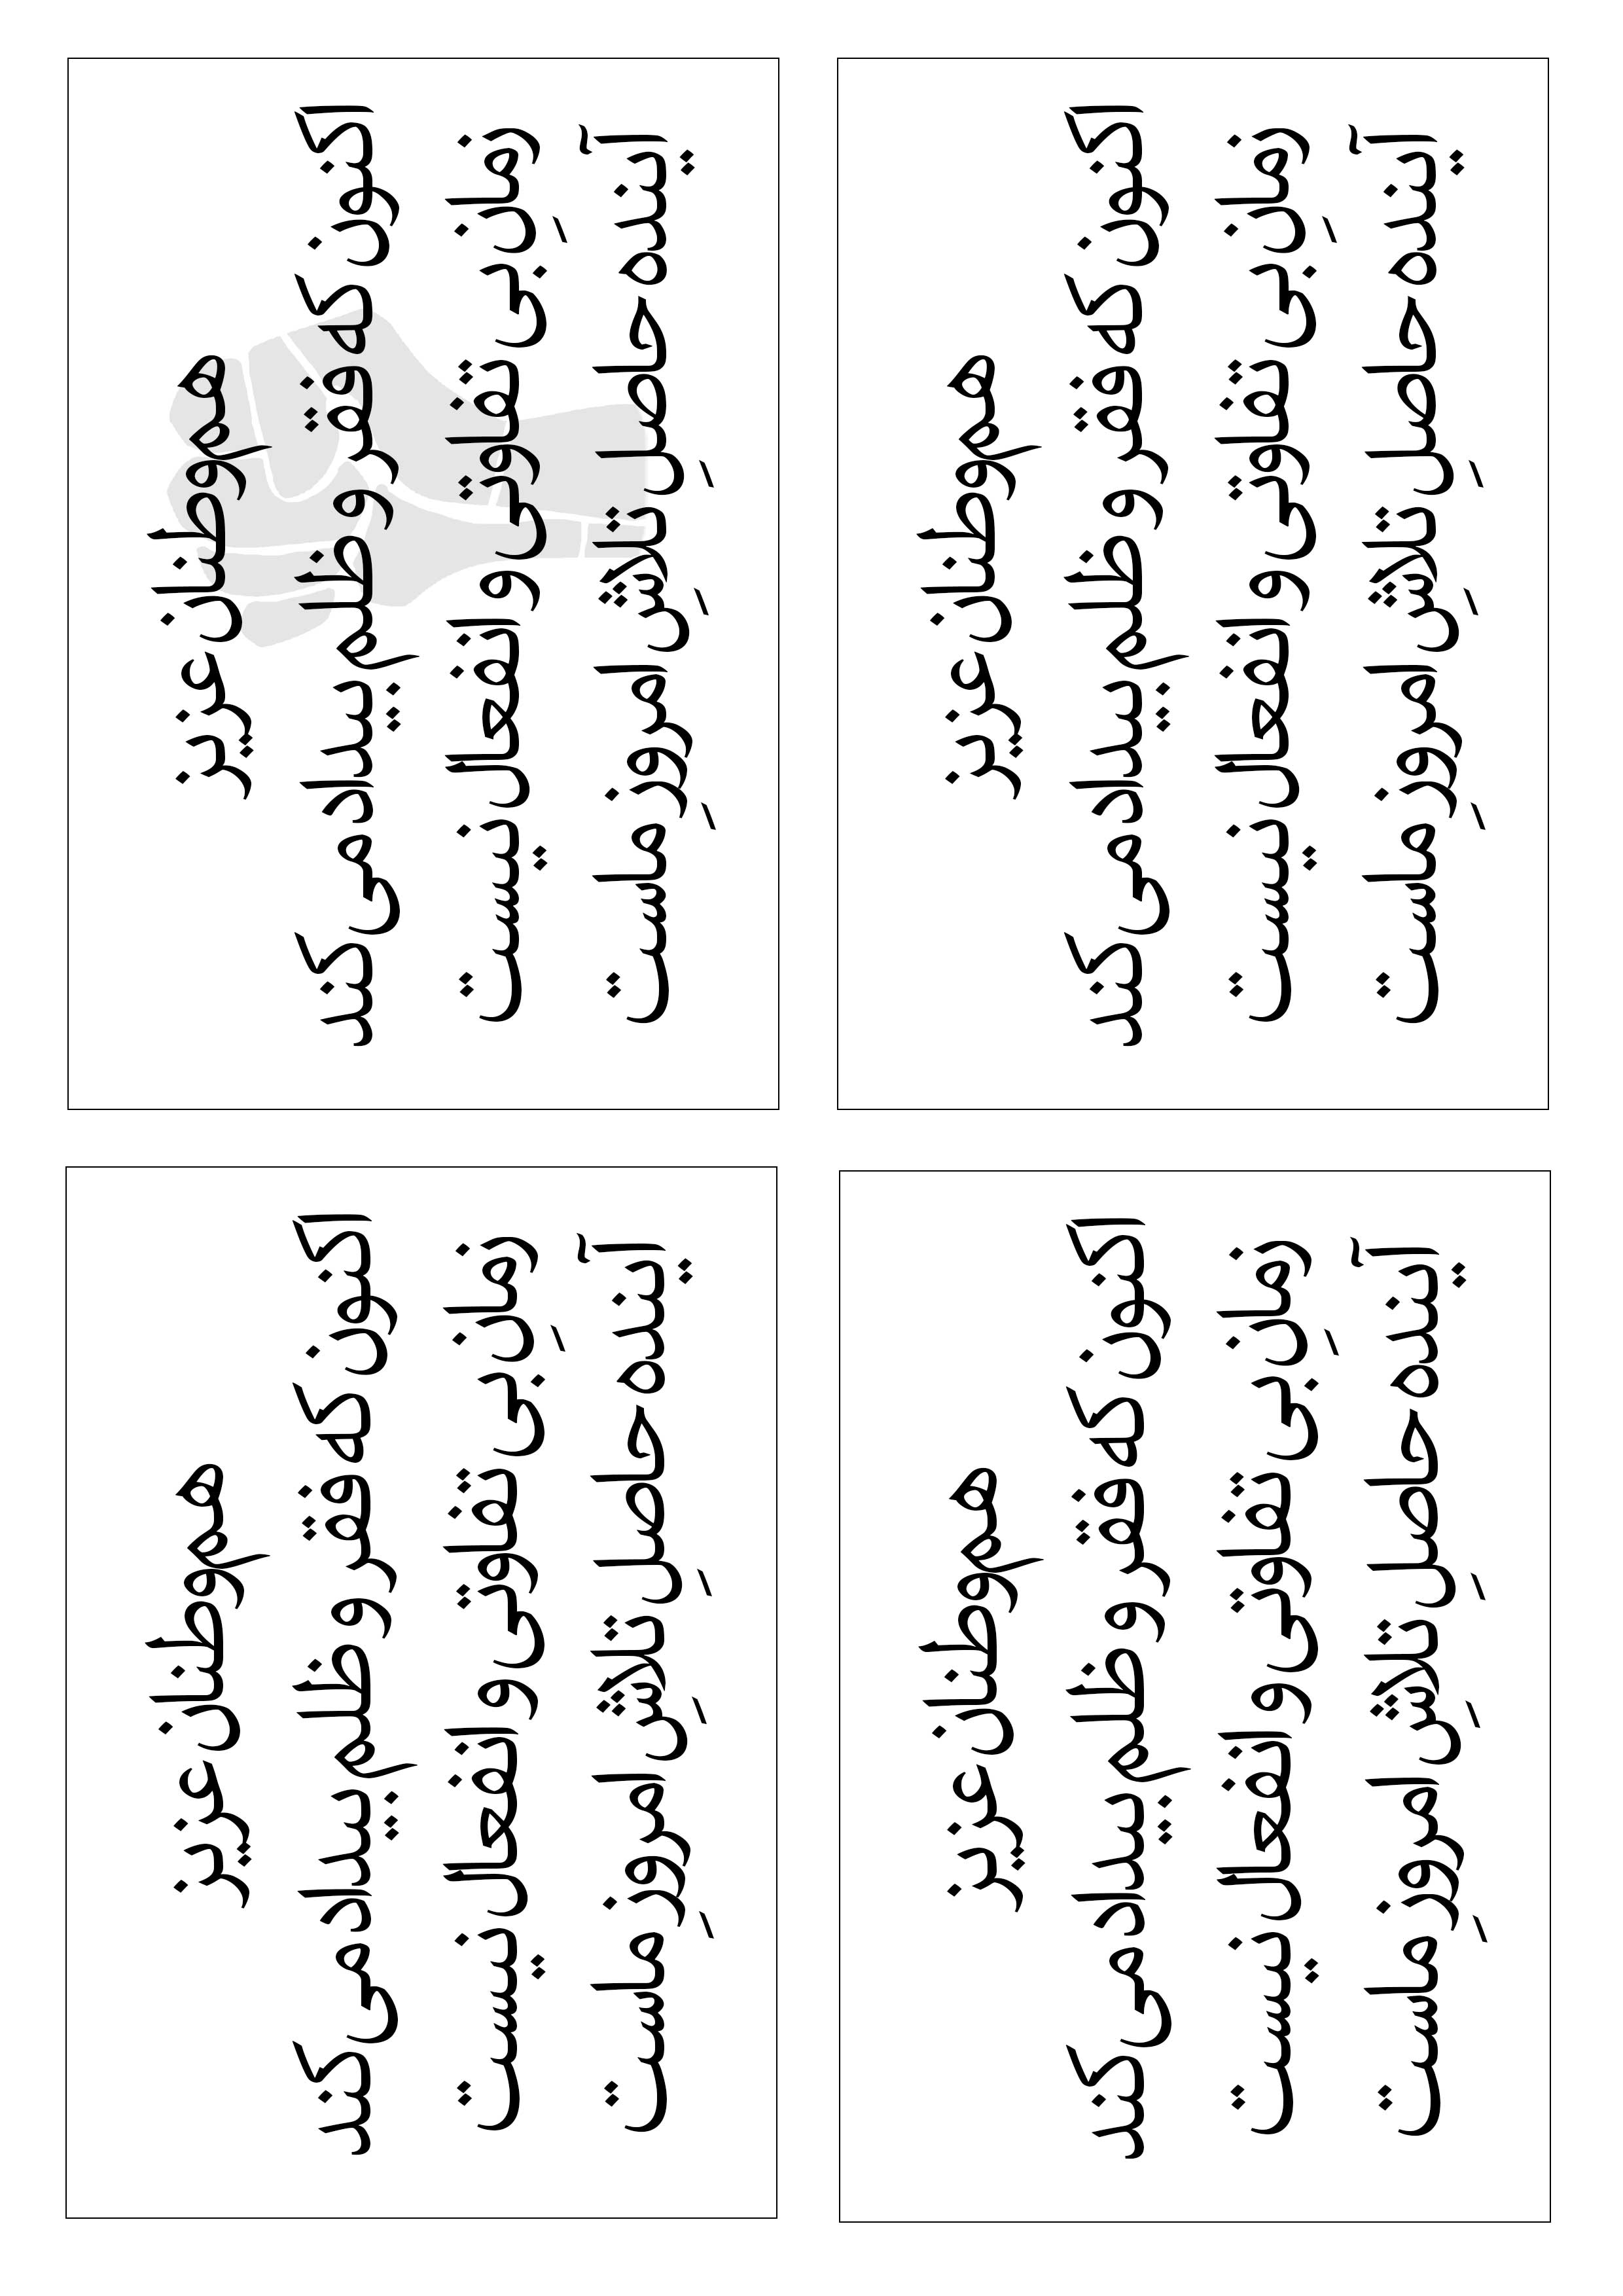 هم‌وطنان عزیز
اکنون که فقر و ظلم بیداد می‌کند
زمانَ بی تفاوتی و انفعال نیست
آینده حاصلِ تلاشِ امروزِ ماست
هم‌وطنان عزیز
اکنون که فقر و ظلم بیداد می‌کند
زمانَ بی تفاوتی و انفعال نیست
آینده حاصلِ تلاشِ امروزِ ماست
هم‌وطنان عزیز
اکنون که فقر و ظلم بیداد می‌کند
زمانَ بی تفاوتی و انفعال نیست
آینده حاصلِ تلاشِ امروزِ ماست
هم‌وطنان عزیز
اکنون که فقر و ظلم بیداد می‌کند
زمانَ بی تفاوتی و انفعال نیست
آینده حاصلِ تلاشِ امروزِ ماست